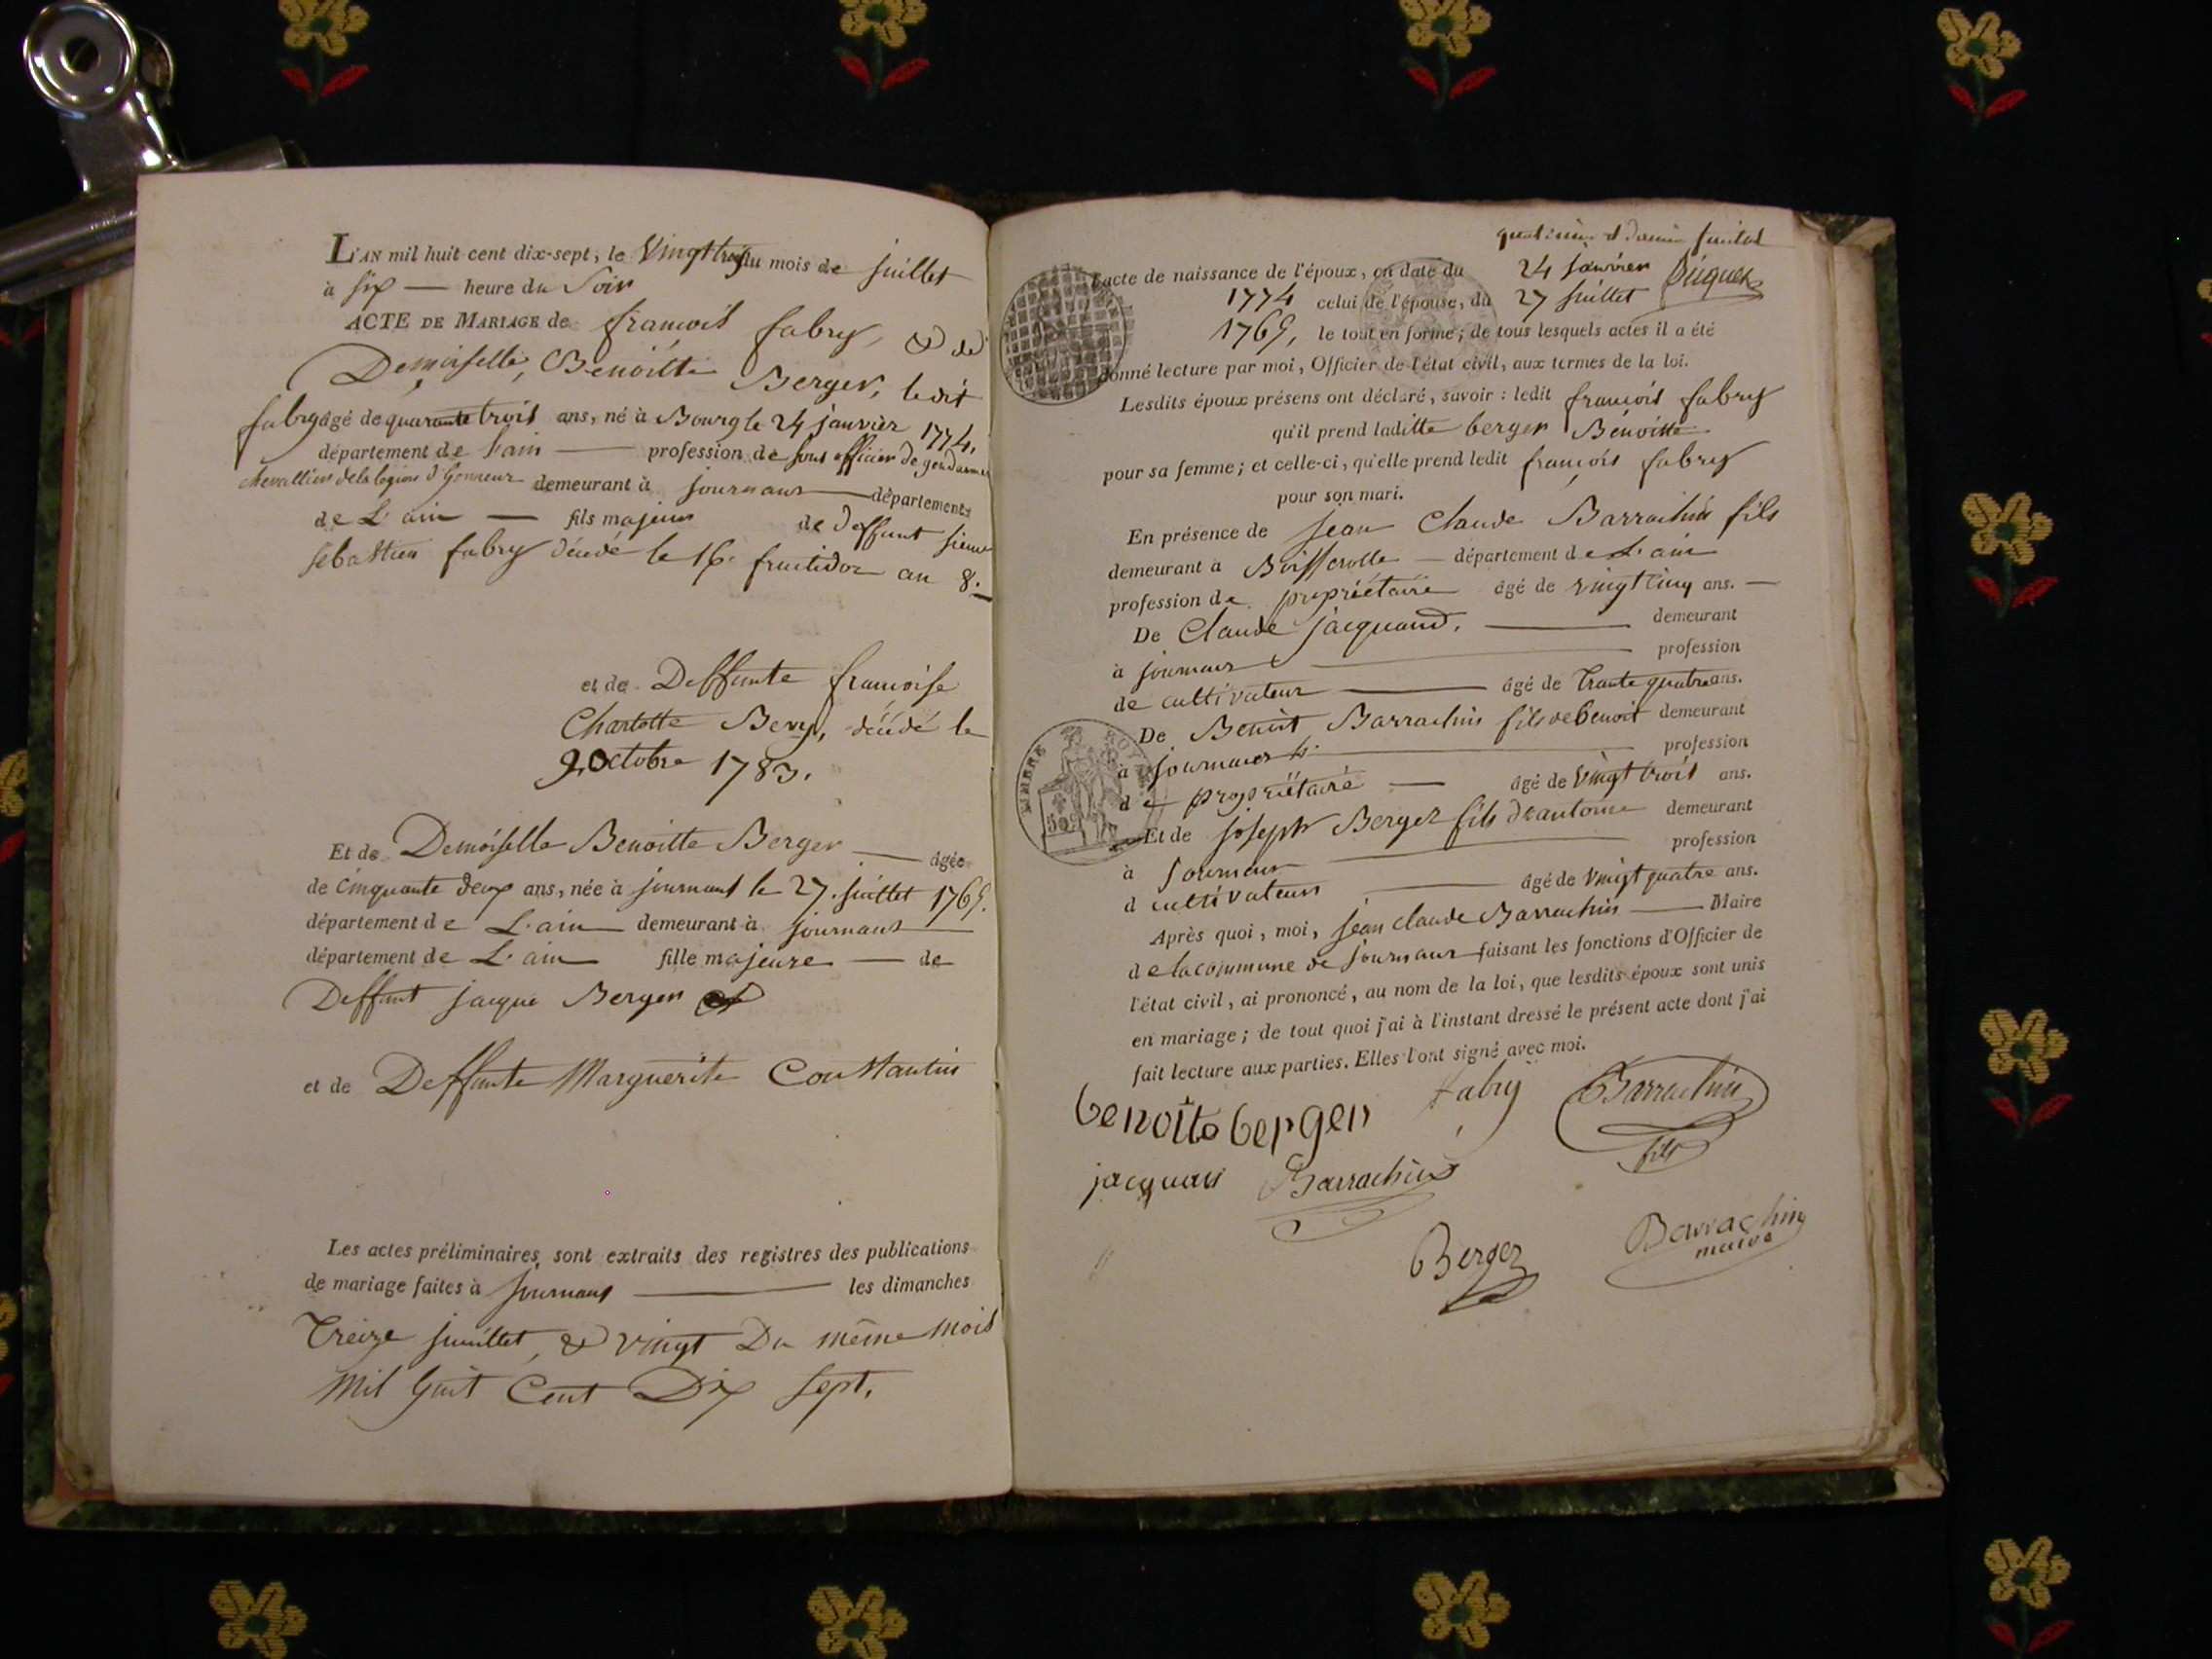 L'AN mil huit cent dix-sept, le Vingttrois du mois de juillet
à six — heure du Soir
ACTE DE MARIAGE de françois fabry, & de
Demoiselle, Benoitte Berger, ledit
fabry âgé de quarante trois ans, né à Bourg le 24 janvier 1774,
département de Lain — profession de sous officier de gendarmerie
chevallier de la legion d'honneur demeurant à journans — département
de L'ain — fils majeur de deffunt sieur
sebastien fabry décédé le 16. fructidor an 8.
et de Deffunte françoise
Charlotte Bevy, décédé le
9. Octobre 1783.
Et de Demoiselle Benoitte Berger — âgée
de cinquante deux ans, née à journans le 27. juillet 1765.
département de L'ain demeurant à journans —
département de L'ain fille majeure — de
Deffunt jacque Berger
et de Deffunte Marguerite Constantin
Les actes préliminaires, sont extraits des registres des publications
de mariage faites à journans — les dimanches
Treize juillet, & vingt Du même mois
Mil huit Cent Dix sept.
l'acte de naissance de l'époux, en date du 24 janvier
1774 celui de l'épouse, du 27 juillet
1765, le tout en forme; de tous lesquels actes il a été
donné lecture par moi, Officier de l'état civil, aux termes de la loi.
Lesdits époux présens ont déclaré, savoir : ledit françois fabry
qu'il prend laditte berger Bénoitte
pour sa femme; et celle-ci, qu'elle prend ledit françois fabry
pour son mari.
En présence de jean Claude Barrachin fils
demeurant à Boisserolle — département de L'ain
profession de propriétaire âgé de vingt cinq ans. —
De Claude jacquand. — demeurant
à journans — profession
de cultivateur — âgé de trante quatre ans.
De Benoit Barrachin fils de benoit demeurant
à journans — profession
de propriétaire — âgé de vingt trois ans.
Et de joseph Berger fils d'antoine demeurant
à journans — profession
d cultivateur — âgé de vingt quatre ans.
Après quoi, moi, jean claude Barrachin — Maire
de la commune de journans faisant les fonctions d'Officier de
l'état civil, ai prononcé, au nom de la loi, que lesdits époux sont unis
en mariage; de tout quoi j'ai à l'instant dressé le présent acte dont j'ai
fait lecture aux parties. Elles l'ont signé avec moi.
benoite berger fabry Barrachin
fils
jacquan Barrachin
Berger Barrachin
maire
TIMBRE ROYAL
50